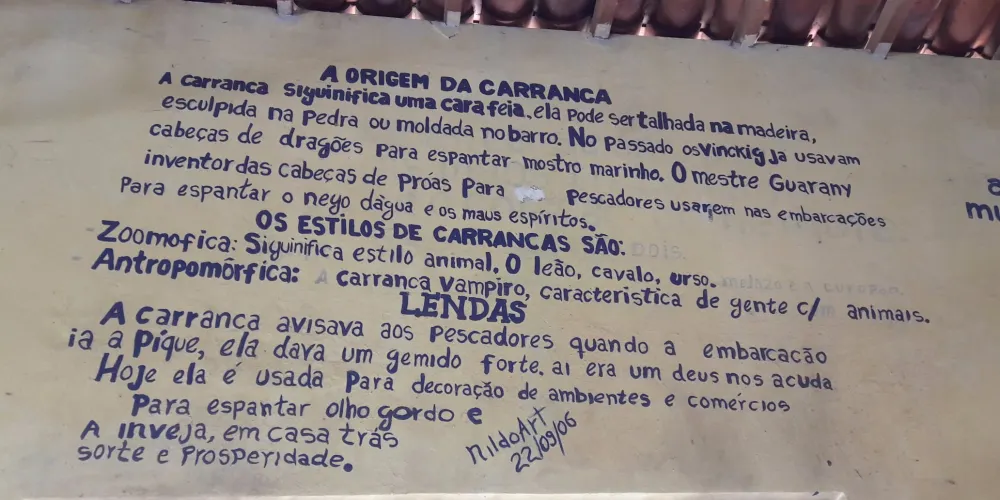 A ORIGEM DA CARRANCA
A carranca siguinifica uma cara feia, ela pode ser talhada na madeira,
esculpida na pedra ou moldada no barro. No passado os vinckig já usavam
cabeças de dragões para espantar mostro marinho. O mestre Guarany
inventor das cabeças de próas para pescadores usarem nas embarcações
Para espantar o nego dágua e os maus espíritos.
OS ESTILOS DE CARRANCAS SÃO:
Zoomofica: Siguinifica estilo animal. O leão, cavalo, urso.
Antropomôrfica: A carranca vampiro, caracteristica de gente c/ animais.
LENDAS
A carranca avisava aos pescadores quando a embarcacão
ia a pique, ela dava um gemido forte. ai era um deus nos acuda
Hoje ela é usada para decoração de ambientes e comércios
Para espantar olho gordo e
A inveja, em casa trás
sorte e prosperidade.
NildoArt
22/09/06